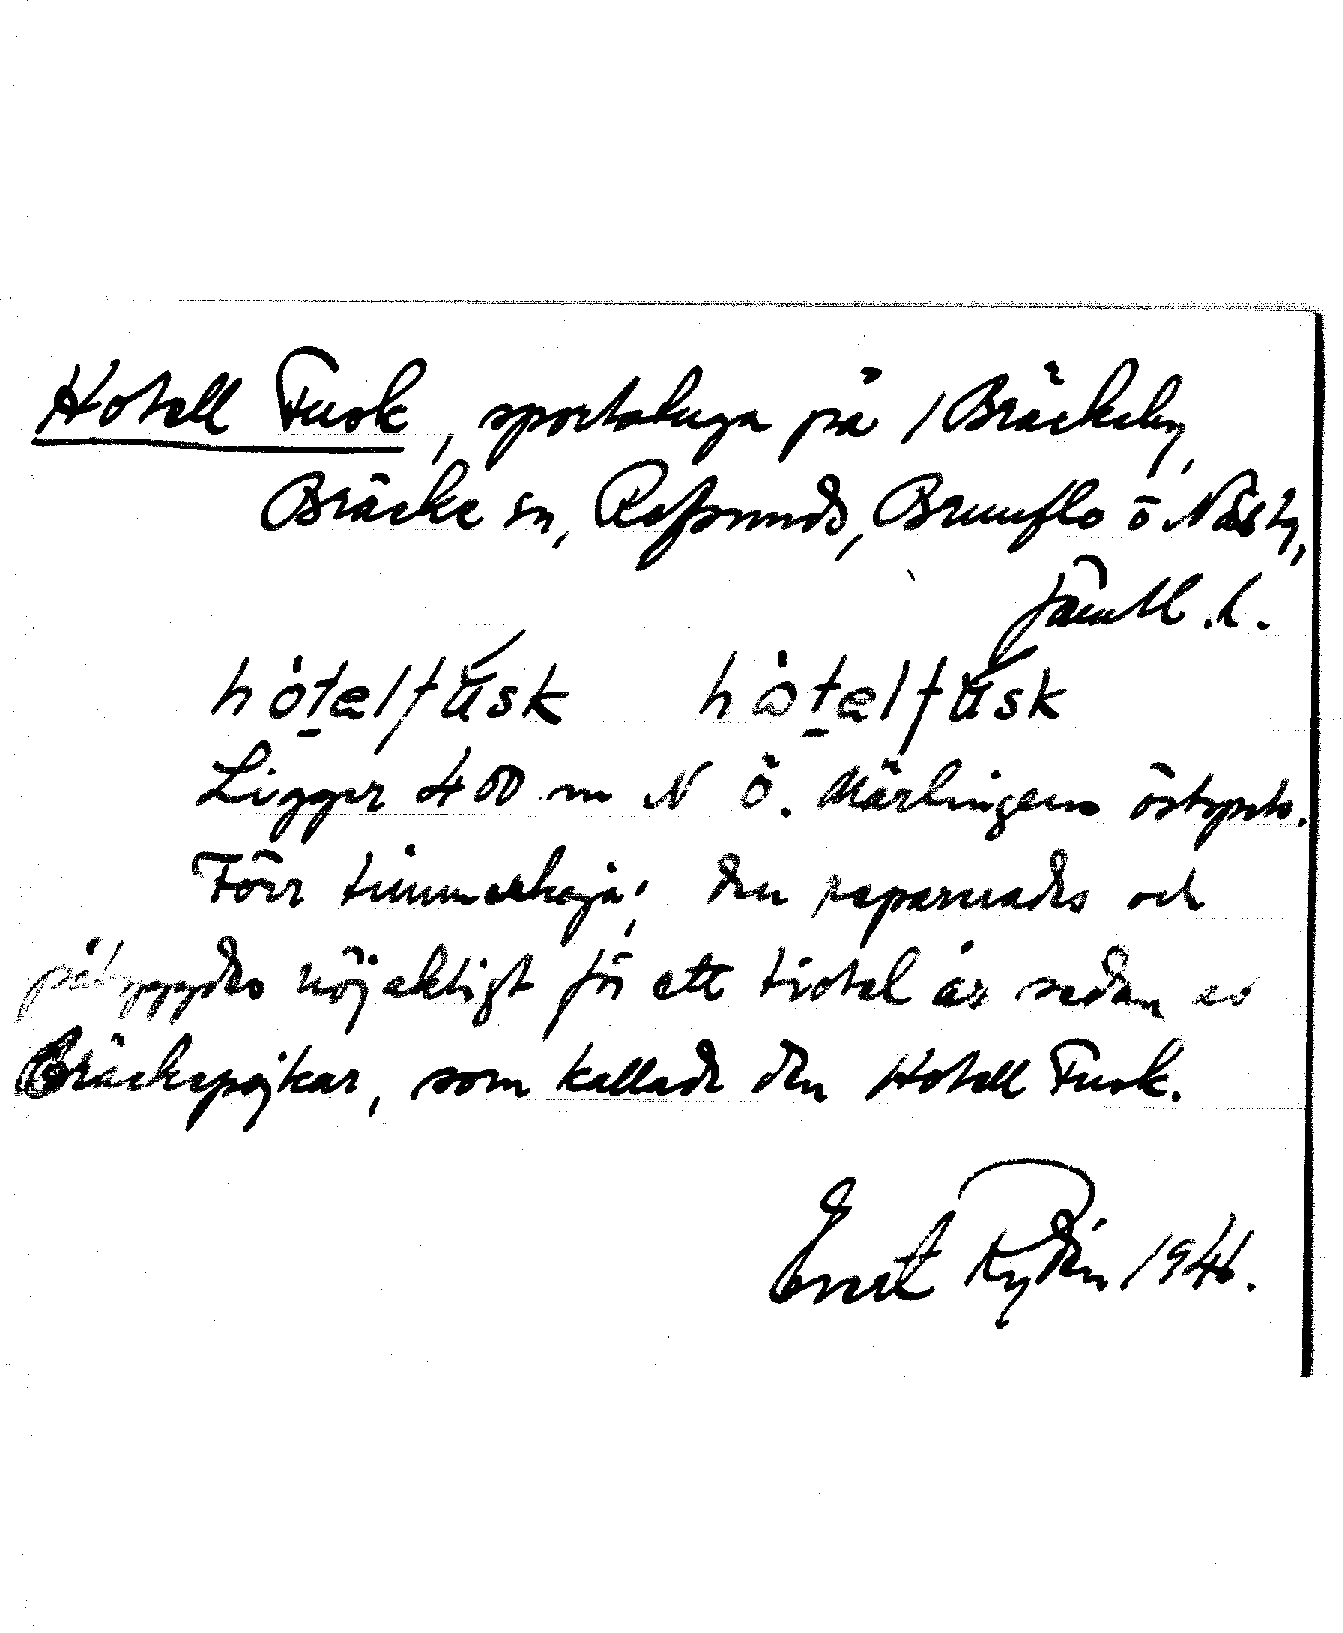 Hotell Fusk, sportstuga på 1 Bräckeby,
Bräcke sn, Refsunds, Brunflo o Näs tg,
Jämtl. l.
hå̇telfúsk hå̇telfúsk
Ligger 400 m N Ö. Märlingens östspets.
Förr timmerkoja; den reparerades och
påbyggdes nöjaktigt för ett tiotal år sedan av
Bräckepojkar, som kallade den Hotell Fusk.
Ernst Rydén 1946.